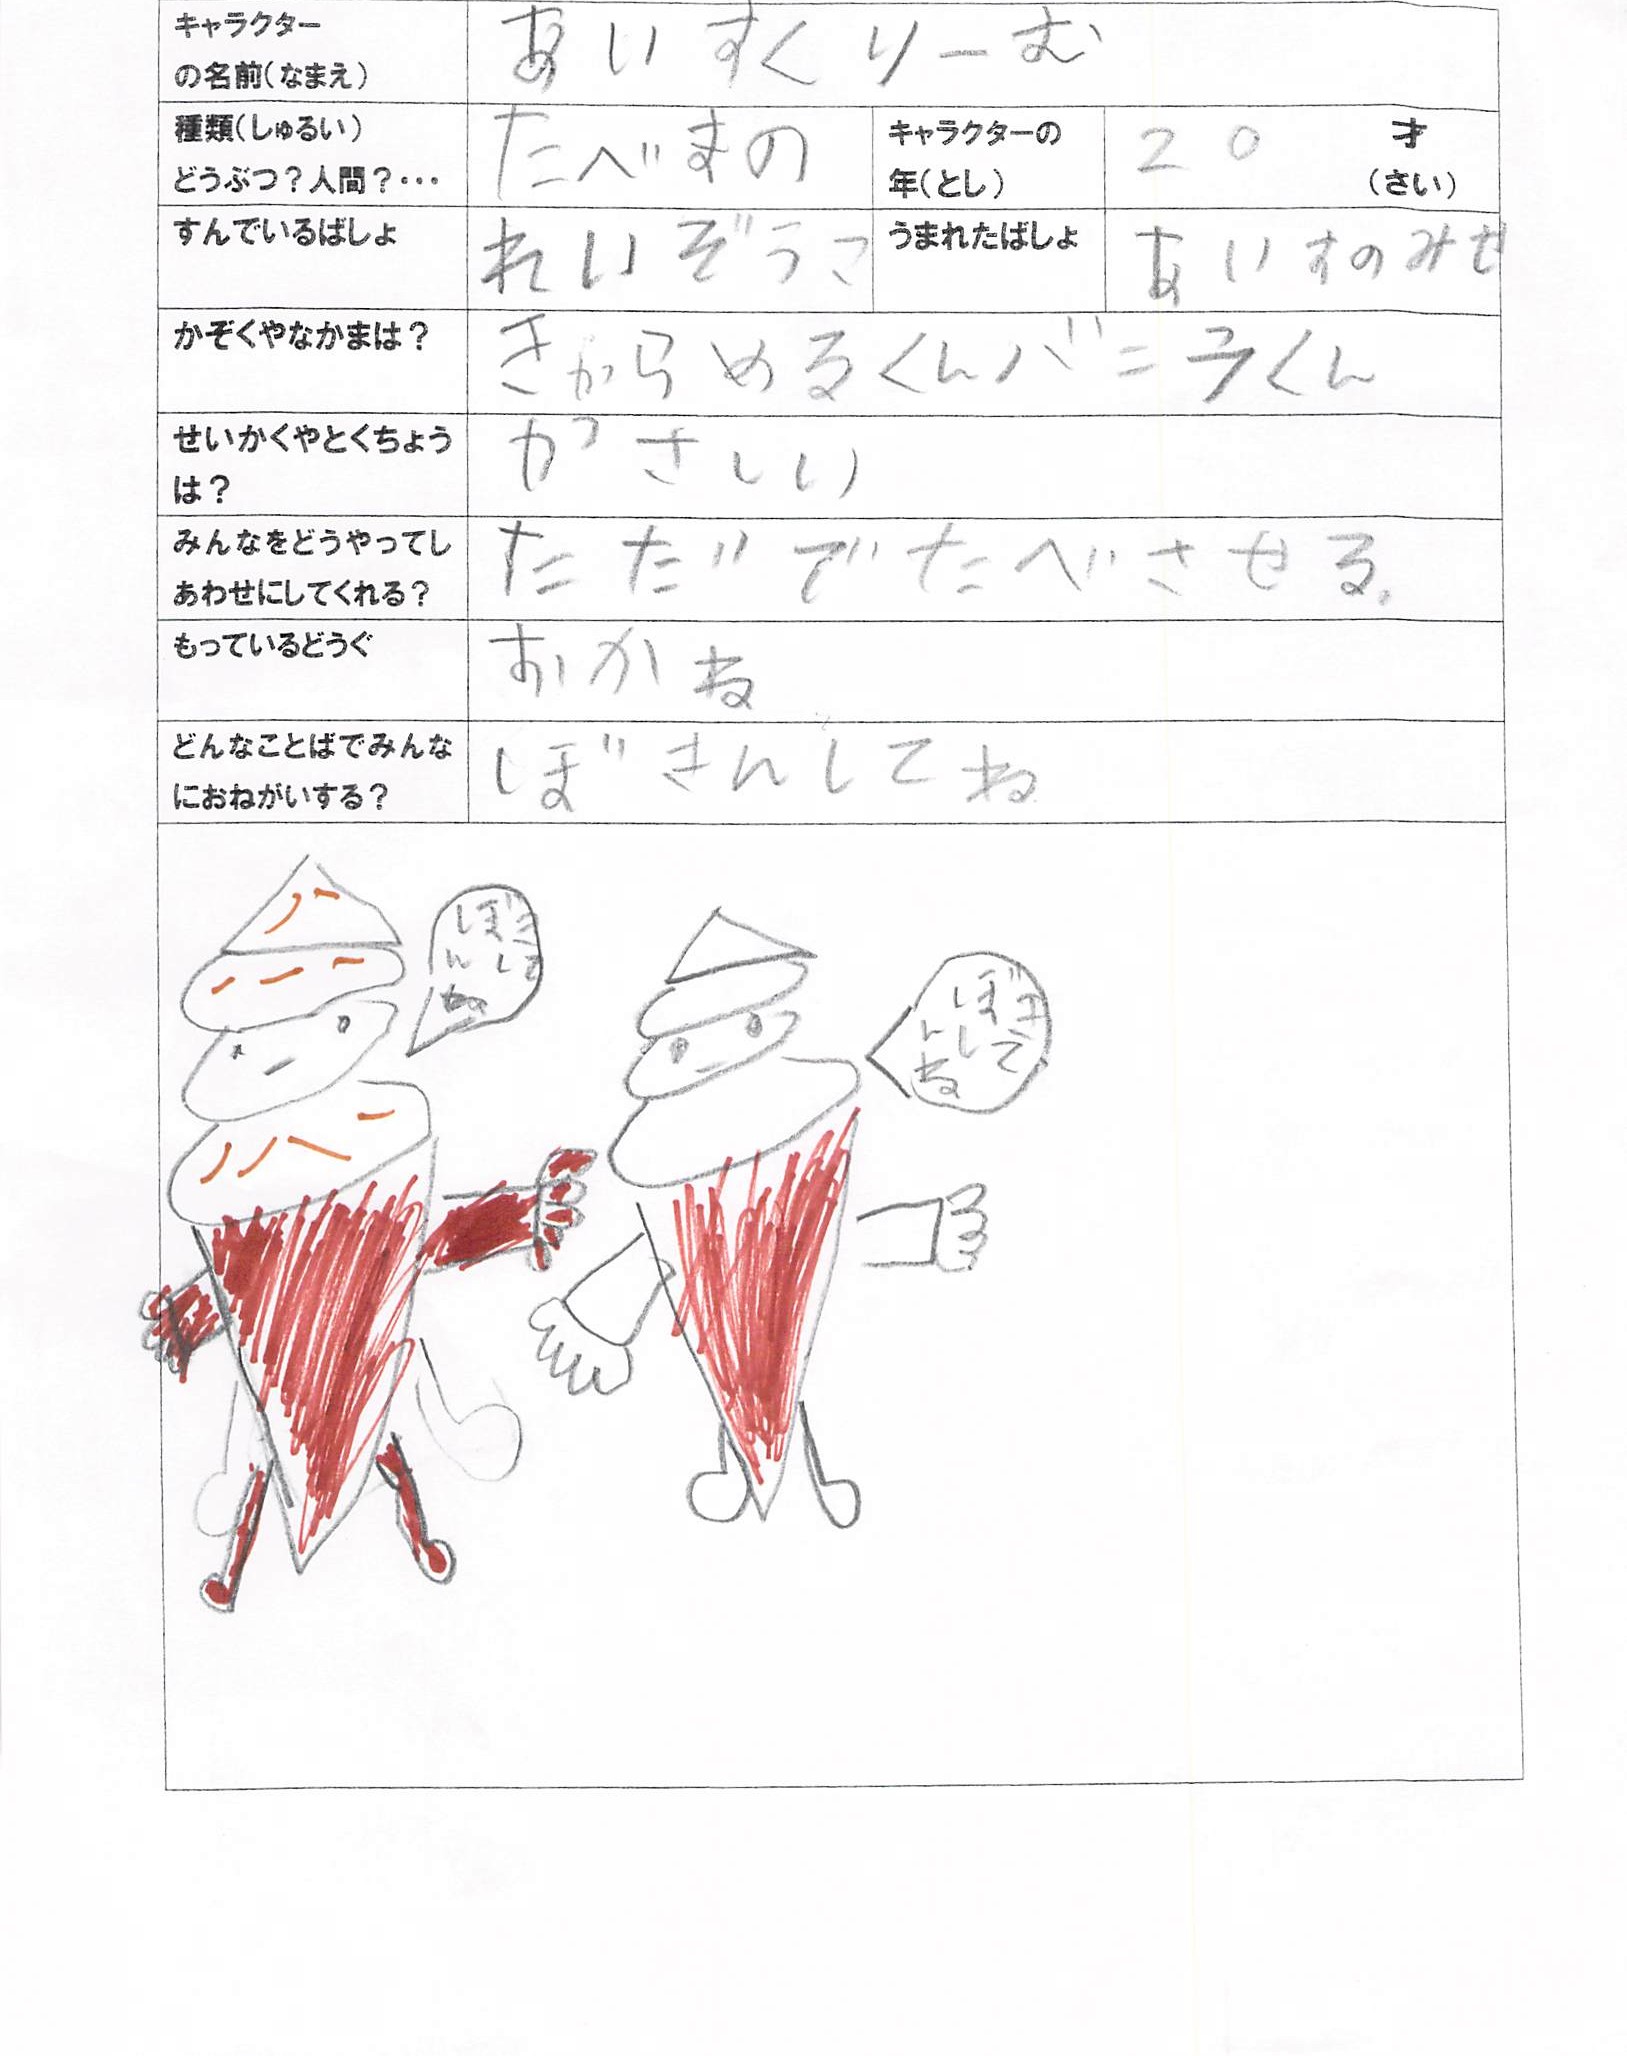 キャラクター
の名前(なまえ)
あいすくりーむ
種類(しゅるい)
どうぶつ?人間?・・・
たべものの
キャラクターの
年(とし)
20
才
(さい)
すんでいるばしょ
れいぞうこ
うまれたばしょ
あいすのみせ
かぞくやなかまは?
きゃらめるくんバニラくん
せいかくやとくちょう
は?
やさしい
みんなをどうやってし
あわせにしてくれる?
ただでたべさせる。
もっているどうぐ
おかね
どんなことばでみんな
におねがいする?
ぼきんしてね
ぼき
んして
ね
ぼき
んして
ね